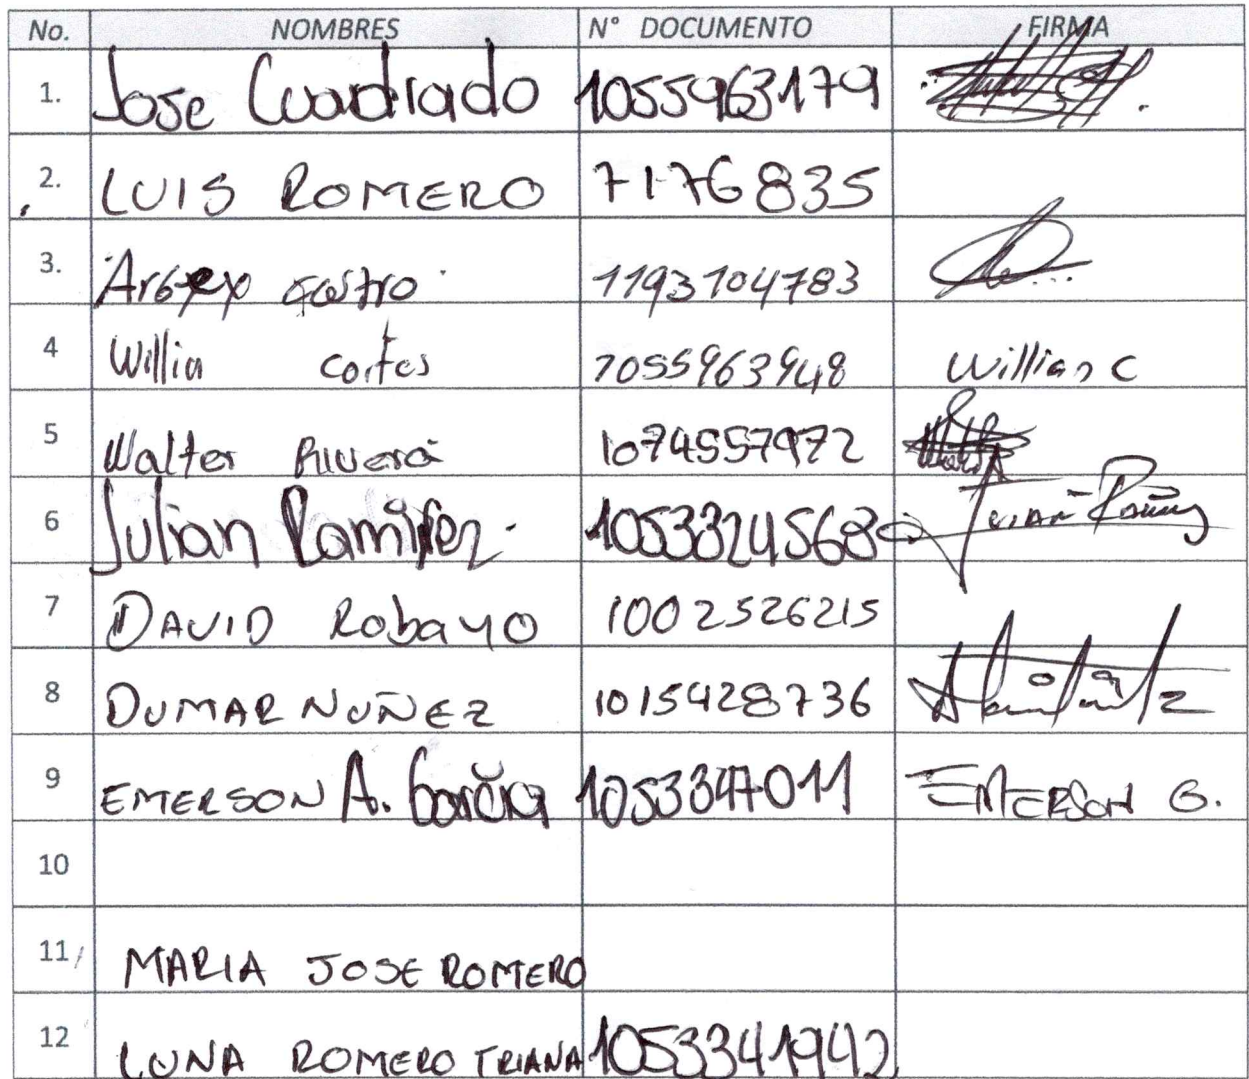 No. NOMBRES N° DOCUMENTO FIRMA
1. Jose Cuadrado 1055963179
2. LUIS ROMERO 7176835
3. castro 1193104783
4 Willia cortes 1055963948 Willian C
5 Walter Rivera 1074557972
6 Julian Ramirez. 1053324568
7 DAVID Robayo 1002526215
8 DUMAR NUÑEZ 1015428736
9 EMERSON A. Garcia 1053347011 EMERSON G.
10
11 MARIA JOSE ROMERO
12 LUNA ROMERO TRIANA 1053341942